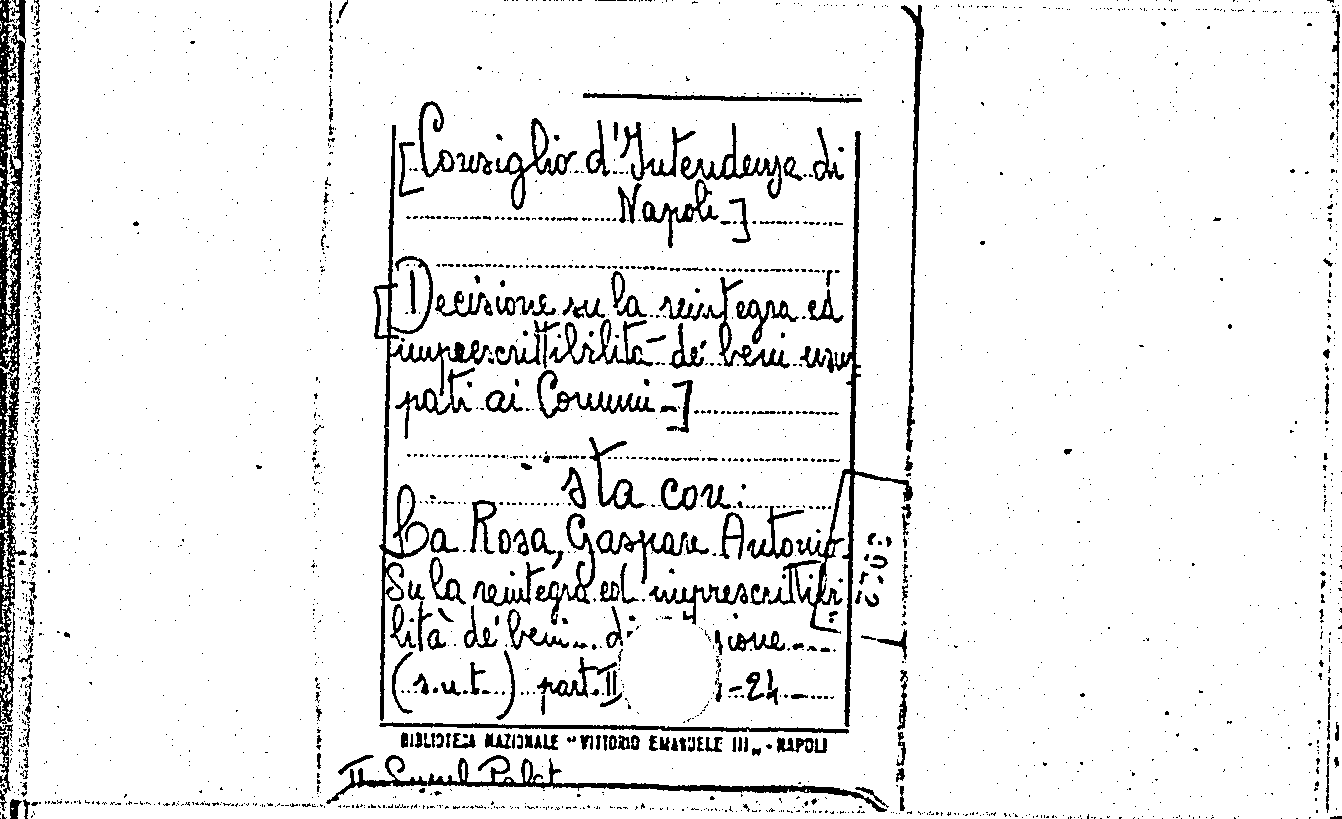 [Consiglio d'Intendenza di
Napoli-]
[Decisione su la reintegra ed
imprescrittibilità de' beni usur
pati ai Comuni-]
sta con:
La Rosa, Gaspare Antonio.
Su la reintegra ed imprescrittibi
lità de' beni... di sione....
(s.n.t.) part. II -24-
BIBLIOTECA NAZIONALE "VITTORIO EMANUELE III„ - NAPOLI
II